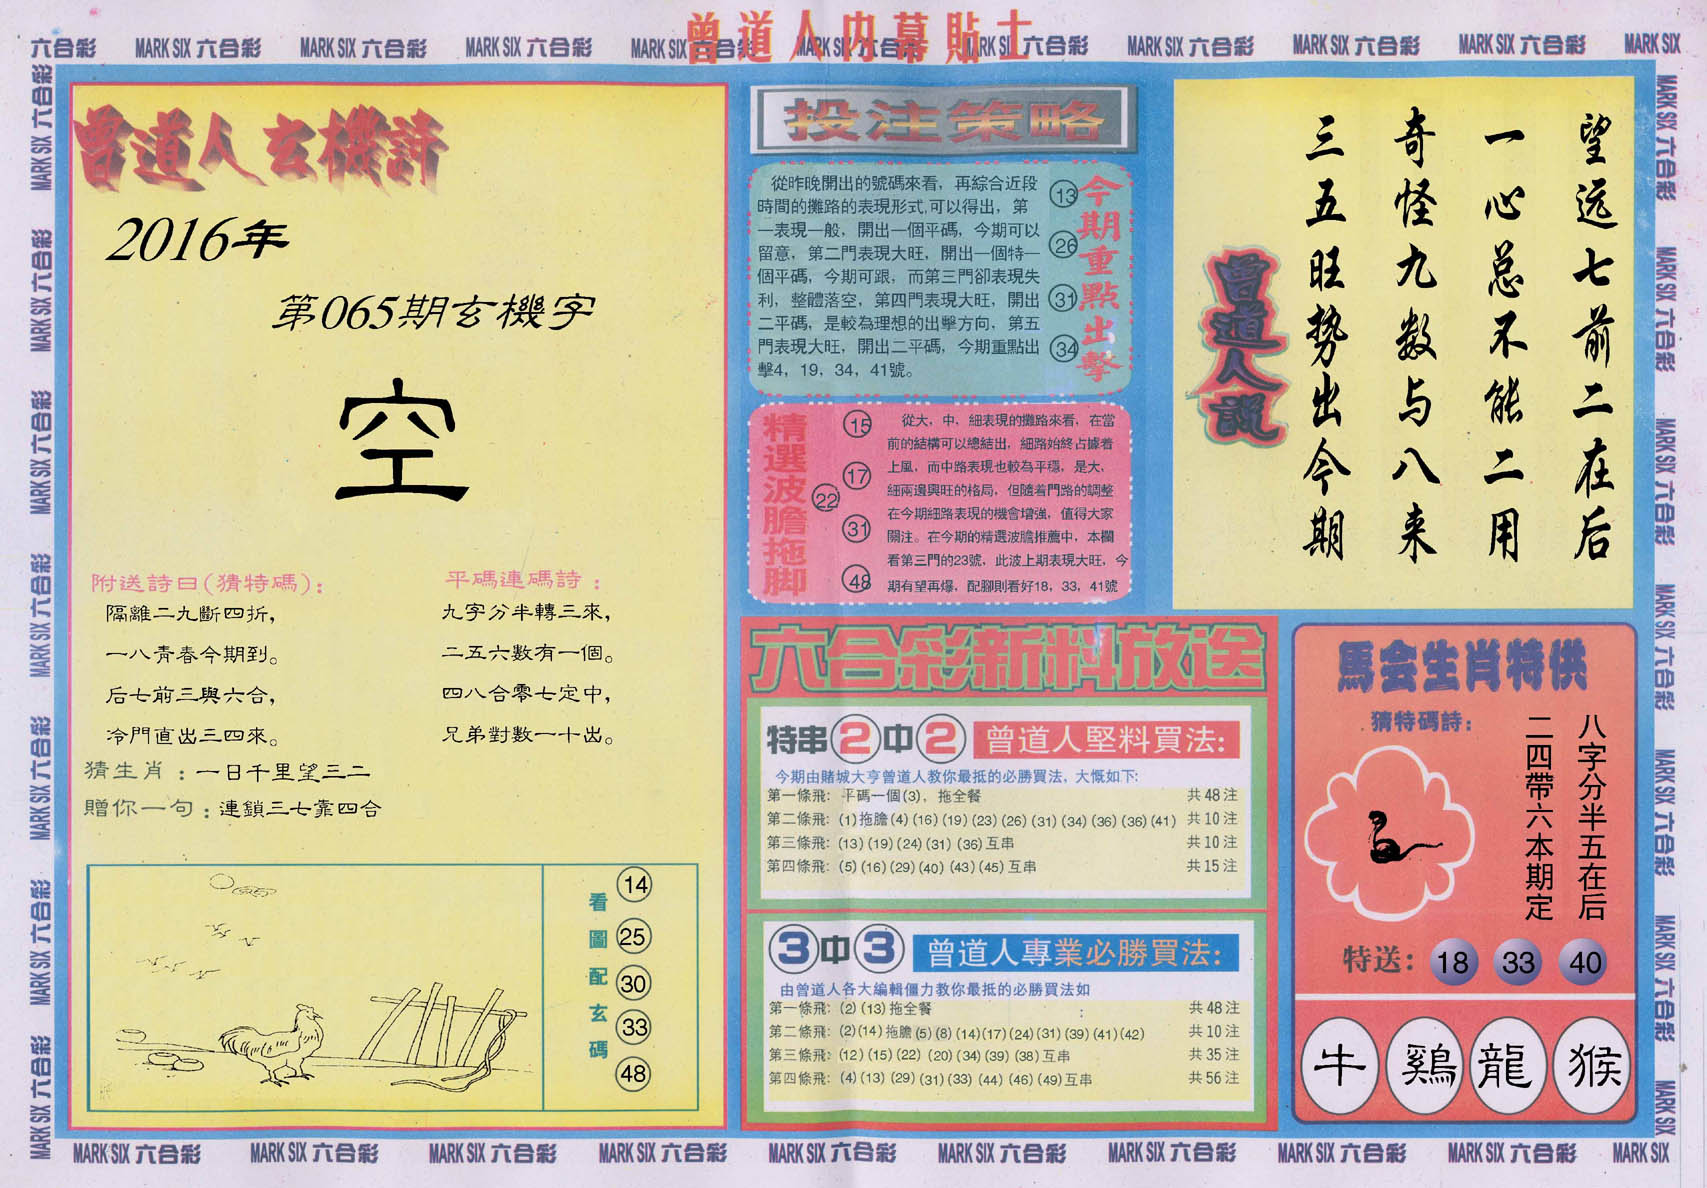 曾道人内幕貼士
六合彩 MARK SIX 六合彩 MARK SIX 六合彩 MARK SIX 六合彩 MARK SIX 六合彩 MARK SIX 六合彩 MARK SIX 六合彩 MARK SIX 六合彩 MARK SIX 六合彩 MARK SIX 六合彩 MARK SIX
曾道人玄機詩
2016年
第065期玄機字
空
附送詩曰(猜特碼):
隔離二九斷四折,
一八青春今期到。
后七前三與六合,
冷門直出三四來。
平碼連碼詩:
九字分半轉三來,
二五六數有一個。
四八合零七定中,
兄弟對數一十出。
猜生肖:一日千里望三二
贈你一句:連鎖三七靠四合
看圖配玄碼
14
25
30
33
48
投注策略
從昨晚開出的號碼來看，再綜合近段
時間的攤路的表現形式,可以得出，第
一表現一般，開出一個平碼，今期可以
留意，第二門表現大旺，開出一個特一
個平碼，今期可跟，而第三門卻表現失
利，整體落空，第四門表現大旺，開出
二平碼，是較為理想的出擊方向，第五
門表現大旺，開出二平碼，今期重點出
擊4，19，34，41號。
13
26
31
34
今期重點出擊
精選波膽拖脚
15
17
22
31
48
從大，中，細表現的攤路來看，在當
前的結構可以總結出，細路始終占據着
上風，而中路表現也較為平穩，是大，
細兩邊興旺的格局，但隨着門路的調整
在今期細路表現的機會增強，值得大家
關注。在今期的精選波膽推薦中，本欄
看第三門的23號，此波上期表現大旺，今
期有望再爆，配腳則看好18，33，41號
望远七前二在后
一心总不能二用
奇怪九数与八来
三五旺势出今期
曾道人説
六合彩新料放送
特串2中2 曾道人堅料買法:
今期由賭城大亨曾道人教你最抵的必勝買法，大慨如下:
第一條飛: 平碼一個(3)，拖全餐 共48注
第二條飛: (1)拖膽(4)(16)(19)(23)(26)(31)(34)(36)(36)(41) 共10注
第三條飛: (13)(19)(24)(31)(36)互串 共10注
第四條飛: (5)(16)(29)(40)(43)(45)互串 共15注
3中3 曾道人專業必勝買法:
由曾道人各大編輯僵力教你最抵的必勝買法如
第一條飛: (2)(13)拖全餐 共48注
第二條飛: (2)(14)拖膽(5)(8)(14)(17)(24)(31)(39)(41)(42) 共10注
第三條飛: (12)(15)(22)(20)(34)(39)(38)互串 共35注
第四條飛: (4)(13)(29)(31)(33)(44)(46)(49)互串 共56注
馬会生肖特供
猜特碼詩:
八字分半五在后
二四帶六本期定
特送: 18 33 40
牛 鷄 龍 猴
MARK SIX 六合彩 MARK SIX 六合彩 MARK SIX 六合彩 MARK SIX 六合彩 MARK SIX 六合彩 MARK SIX 六合彩 MARK SIX 六合彩 MARK SIX 六合彩 MARK SIX 六合彩 MARK SIX